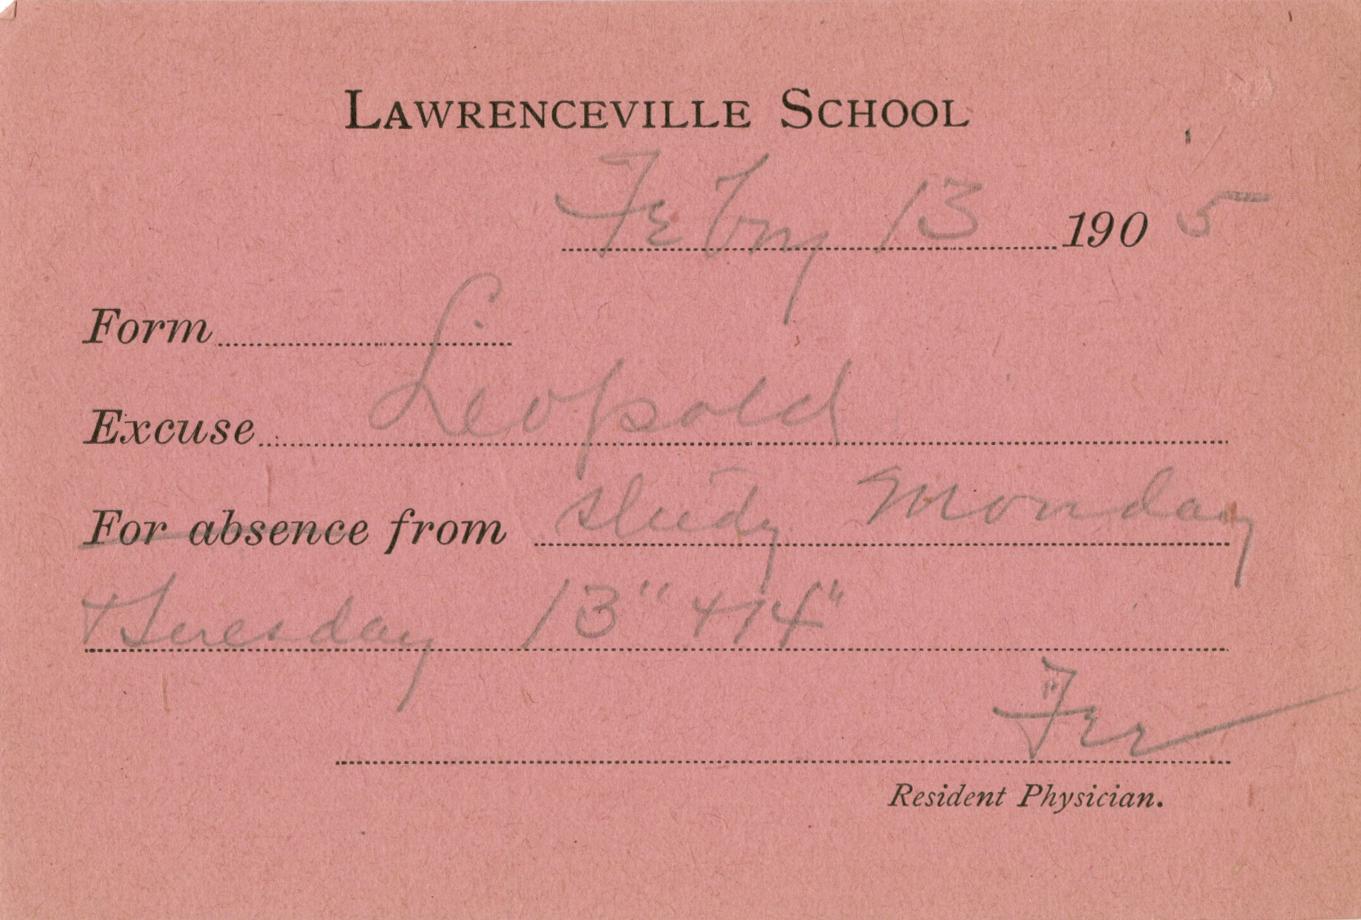 LAWRENCEVILLE SCHOOL
Febry 13 1905
Form
Excuse Leopold
For absence from study Monday
+ Tuesday 13" + 14"
Resident Physician.